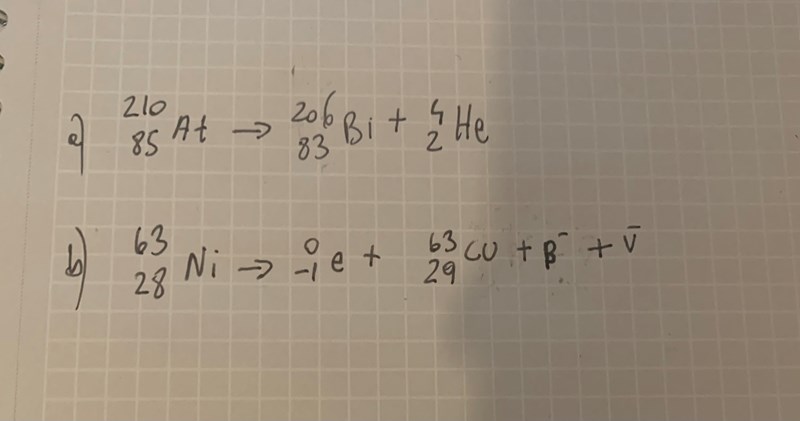 a) ²¹⁰₈₅At → ²⁰⁶₈₃Bi + ⁴₂He
b) ⁶³₂₈Ni → ⁰₋₁e + ⁶³₂₉Cu + β⁻ + ν̄